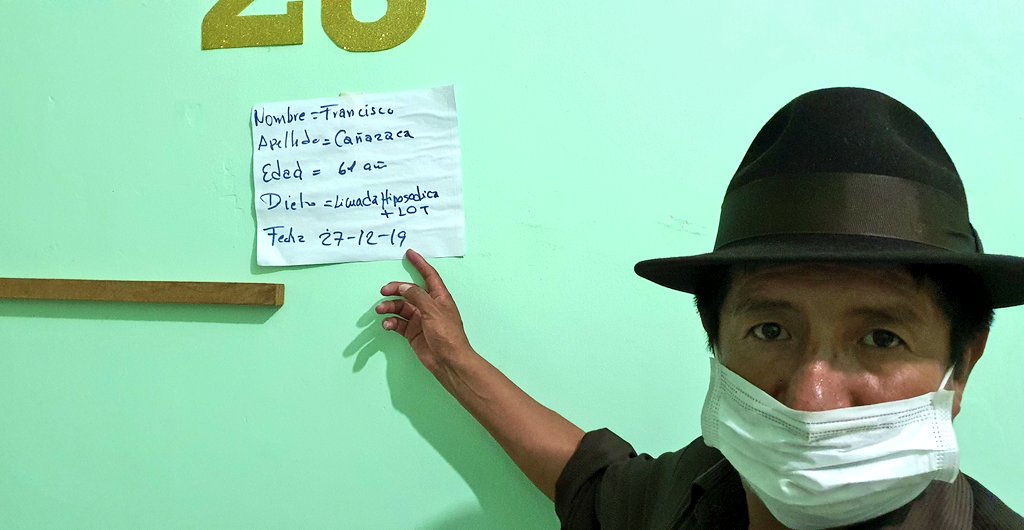 28
Nombre = Francisco
Apellido = Cañazaca
Edad = 61 añ
Dieta = Licuada Hiposodica
+ LOT
Fecha 27-12-19